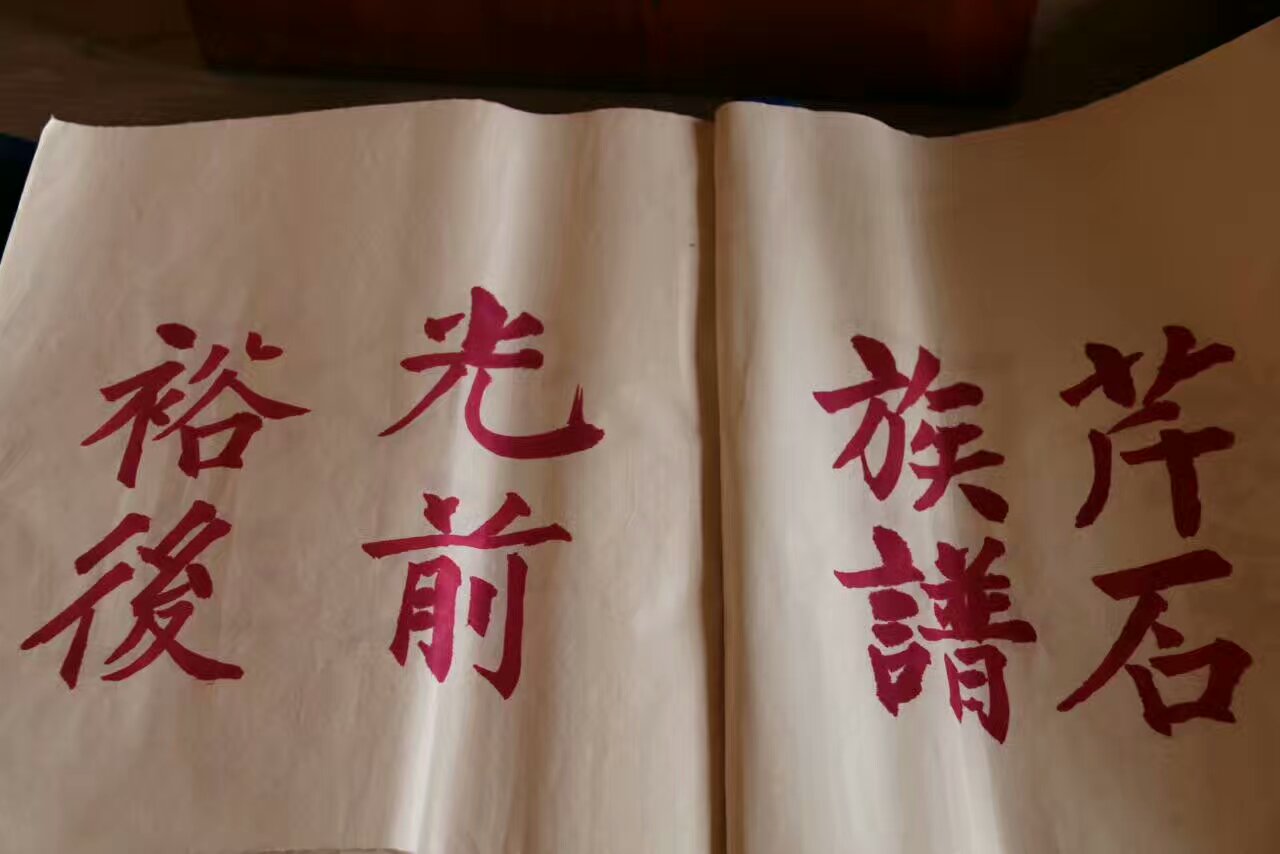 芹石
族譜
光前
裕後